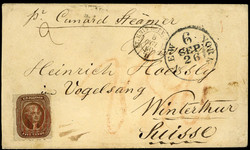 pr Cunard Steamer
NEW YORK
6
SEP
26
Heinrich Hoessly
in Vogelsang
Winterthur
Suisse